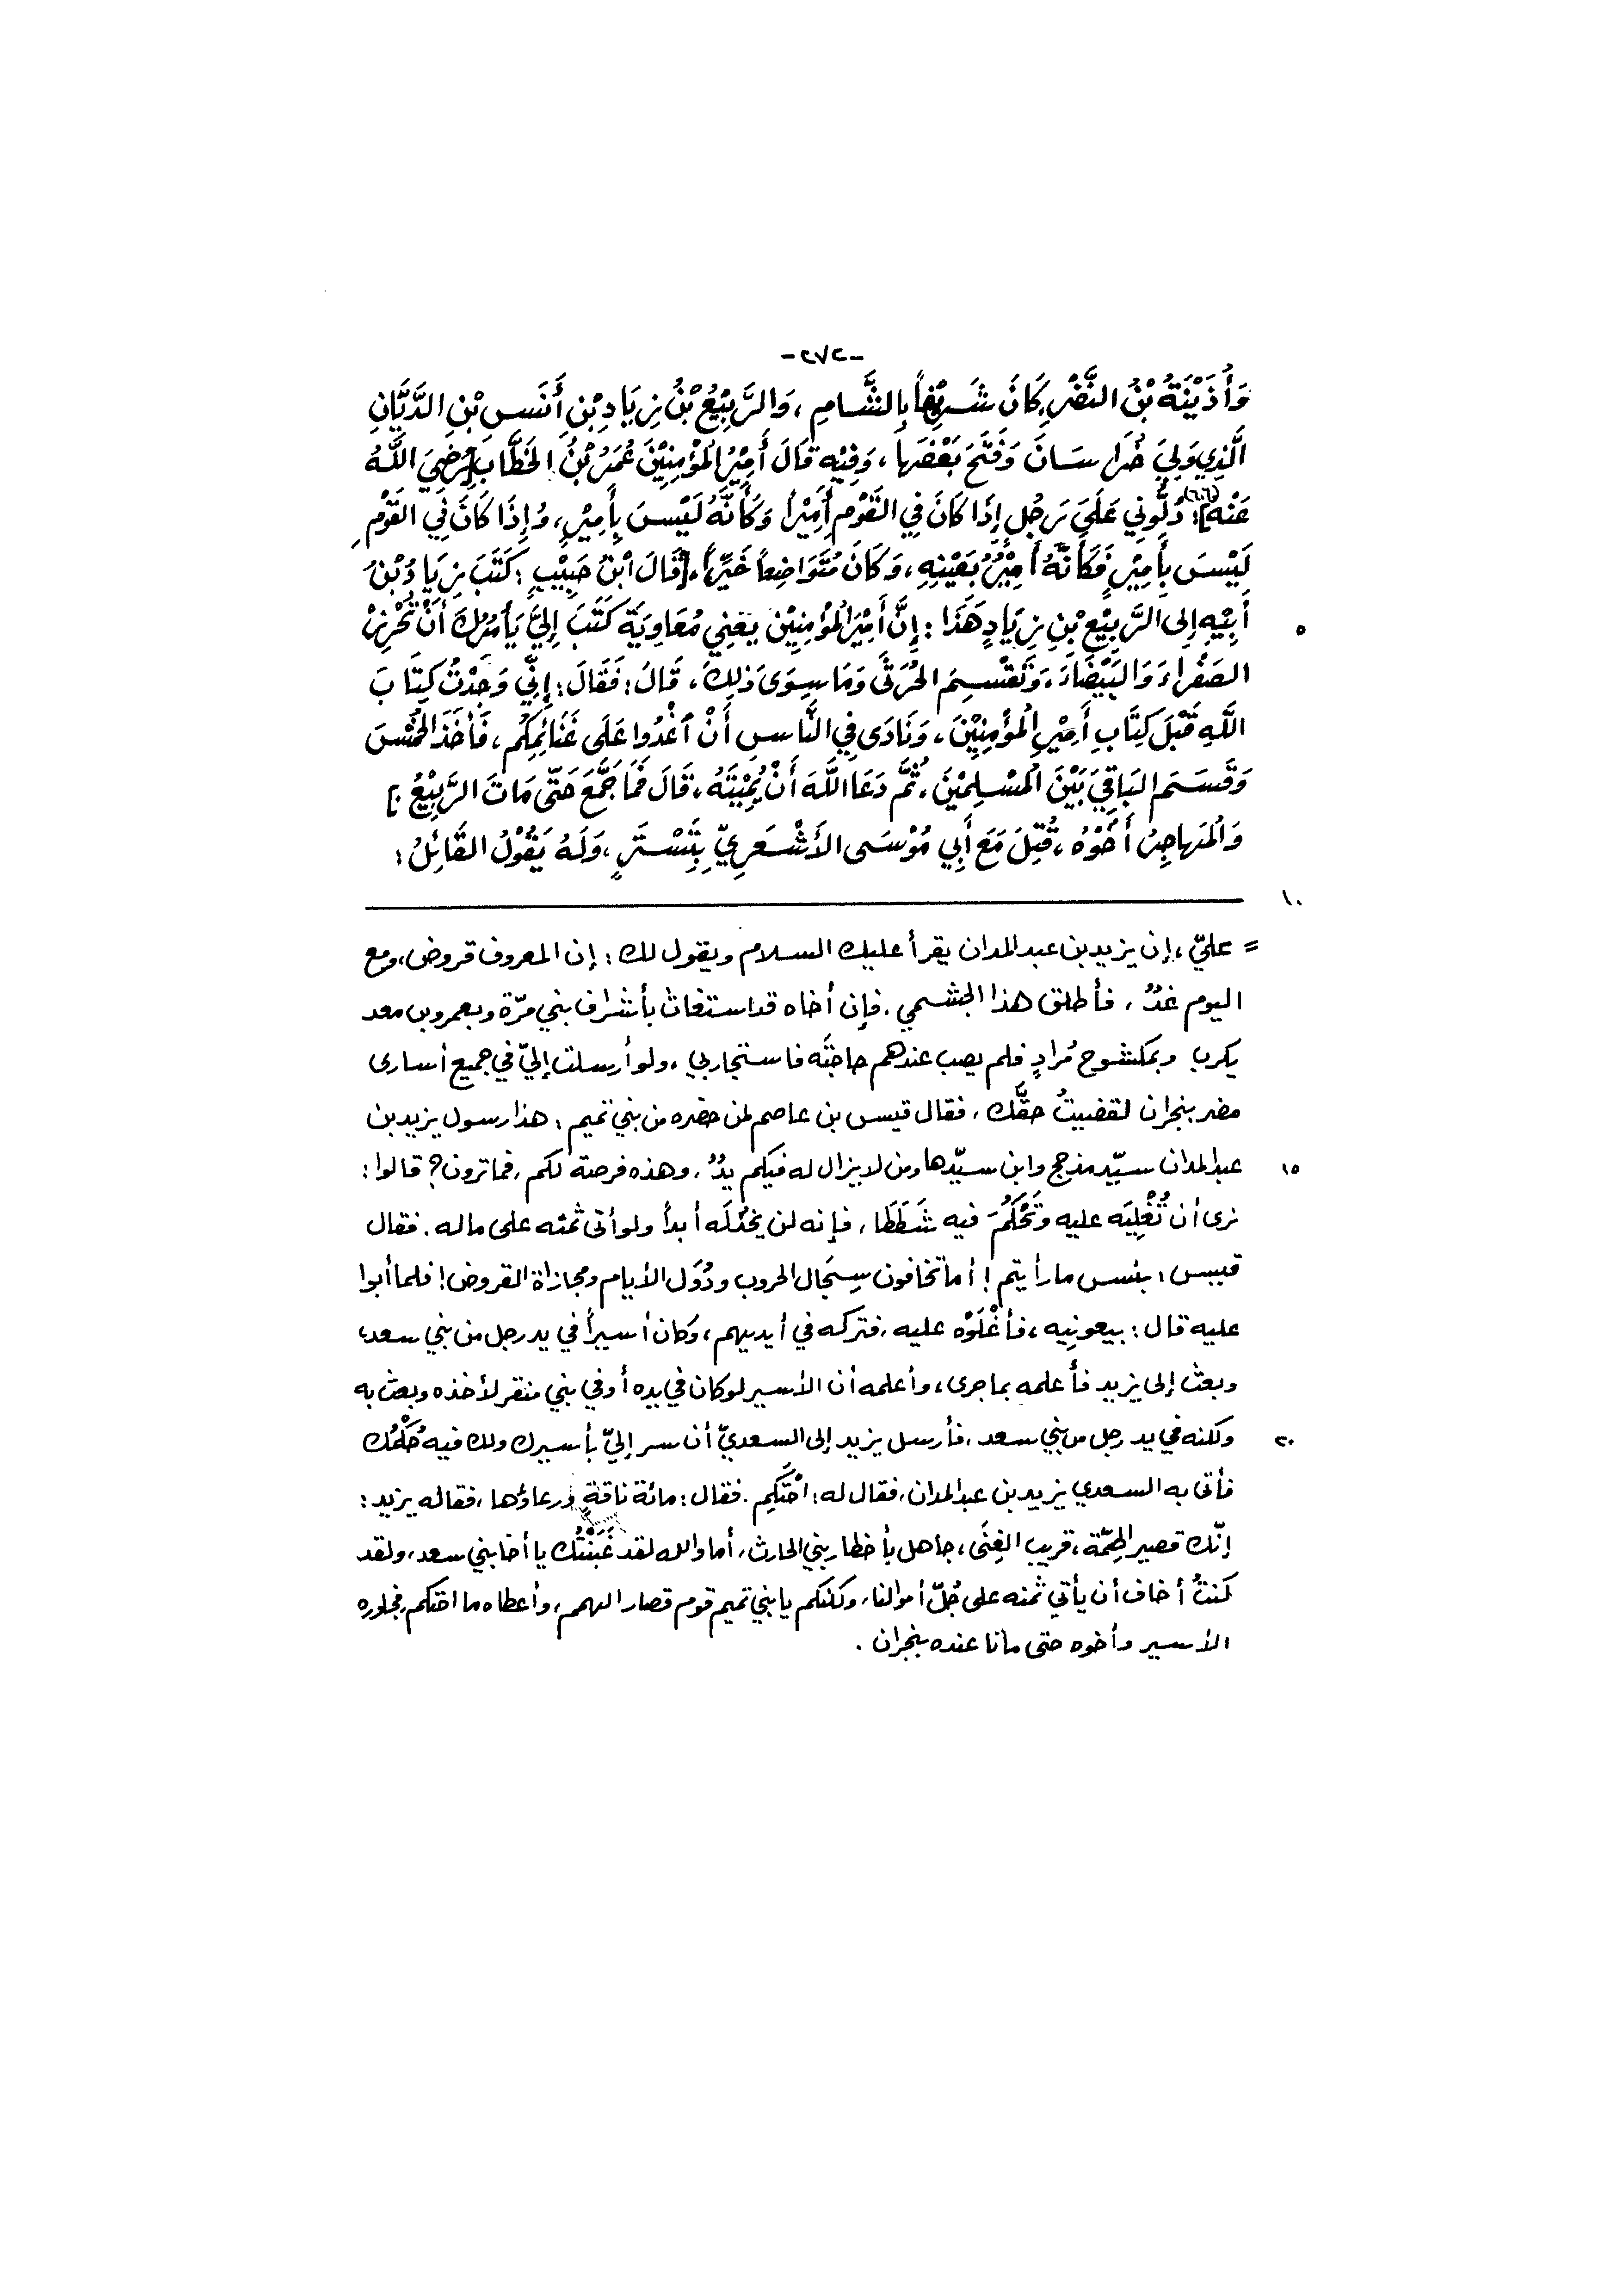 -٢٧٢-
وَأُذَيْنَةُ بْنُ النَّضْرِ، كَانَ شَرِيْفاً بِالشَّامِ، وَالرَّبِيْعُ بْنُ زِيَادِ بْنِ أَنَسِ بْنِ الدَّيَّانِ
الَّذِي وَلِيَ خُرَاسَانَ وَفَتَحَ بَعْضَهَا، وَفِيْهِ قَالَ أَمِيْرُ الْمُؤْمِنِيْنَ عُمَرُ بْنُ الخَطَّابِ [رَضِيَ اللَّهُ
عَنْهُ]: دُلُّونِي عَلَى رَجُلٍ إِذَا كَانَ فِي القَوْمِ أَمِيْراً وَكَأَنَّهُ لَيْسَ بِأَمِيْرٍ، وَإِذَا كَانَ فِي القَوْمِ
لَيْسَ بِأَمِيْرٍ فَكَأَنَّهُ أَمِيْرٌ بِعَيْنِهِ، وَكَانَ مُتَوَاضِعاً خَيِّراً، [قَالَ ابْنُ حَبِيْبٍ: كَتَبَ زِيَادُ بْنُ
٥ أَبِيْهِ إِلى الرَّبِيْعِ بْنِ زِيَادٍ هَذَا: إِنَّ أَمِيْرَ الْمُؤْمِنِيْن يَعْنِي مُعَاوِيَةَ كَتَبَ إِلَيَّ يَأْمُرُكَ أَنْ تُحْرِزَ
الصَفْرَاءَ وَالبَيْضَاءَ، وَتَقْسِمَ الخُرْثَى وَمَا سِوَى ذَلِكَ، قَالَ: فَقَالَ: إِنِّي وَجَدْتُ كِتَابَ
اللَّهِ قَبْلَ كِتَابِ أَمِيْرِ الْمُؤْمِنِيْنَ، وَنَادَى فِي النَّاسِ أَنْ اغْدُوا عَلَى غَنَائِمِكُم، فَأَخَذَ الخُمْسَ
وَقَسَمَ البَاقِيَ بَيْنَ الْمُسْلِمِيْنَ، ثُمَّ دَعَا اللَّهَ أَنْ يُمِيْتَهُ، قَالَ فَمَا جَمَّعَ حَتَّى مَاتَ الرَّبِيْعُ.]
وَالْمُهَاجِرُ أَخُوْهُ، قُتِلَ مَعَ أَبِي مُوْسَى الأَشْعَرِيِّ بِتُسْتَرٍ، وَلَهُ يَقُوْلُ القَائِلُ:
١٠
= عليّ، إن يزيد بن عبد المدان يقرأ عليك السلام ويقول لك: إن المعروف قروض، ومع
اليوم غدٌ، فأطلق هذا الجشمي، فإن أخاه قد استغاث بأشراف بني مرّة وبعمرو بن معد
يكرب وبمكشوح مُرادٍ فلم يصب عندهم حاجتَه فاستجار بي، ولو أرسلت إليّ في جميع أسارى
مضر بنجران لقضيتُ حقَّك، فقال قيس بن عاصم لمن حضره من بني تميم: هذا رسول يزيد بن
١٥ عبد المدان سيّد مذحج وابن سيّدها ومن لا يزال له فيكم يدٌ، وهذه فرصة لكم، فما ترون؟ قالوا:
نرى أن تُغْلِيَه عليه وتَحْكُمَ فيه شَطَطا، فإنه لن يخذُلَه أبداً ولو أتى ثمنه على ماله. فقال
قيس: بئس ما رأيتم! أما تخافون سِجَال الحروب ودُوَل الأيام ومجازاة القروض! فلما أبوا
عليه قال: بيعونِيه، فأغْلَوْه عليه، فتركه في أيديهم، وكان أسيراً في يد رجل من بني سعد،
وبعث إلى يزيد فأعلمه بما جرى، وأعلمه أن الأسير لو كان في يده أو في بني منقر لأخذه وبعث به
٢٠ ولكنه في يد رجل من بني سعد، فأرسل يزيد إلى السعديّ أن سر إليّ بأسيرك ولك فيه حُكْمُك
فأتى به السعدي يزيد بن عبد المدان، فقال له: احْتَكِم. فقال: مائة ناقةٍ ورعاؤها، فقال له يزيد:
إنّك قصير الهِمّة، قريب الغِنَى، جاهل بأخطار بني الحارث، أما والله لقد غَبَنْتُك يا أخا بني سعد، ولقد
كنتُ أخاف أن يأتي ثمنه على جُلّ أموالنا، ولكنكم يا بني تميم قوم قصار الهمم، وأعطاه ما احتكم، فجاوره
الأسير وأخوه حتى ماتا عنده بنجران.